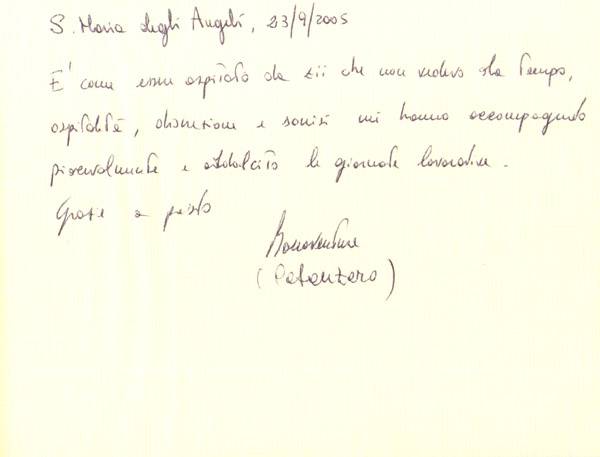 S. Maria degli Angeli, 23/9/2005
E' come essere ospitato da zii che non vedevo da tempo,
ospitalità, discrezione e sorrisi mi hanno accompagnato
piacevolmente e addolcito le giornate lavorative.
Grazie a presto
Bonaventura
(Catanzaro)